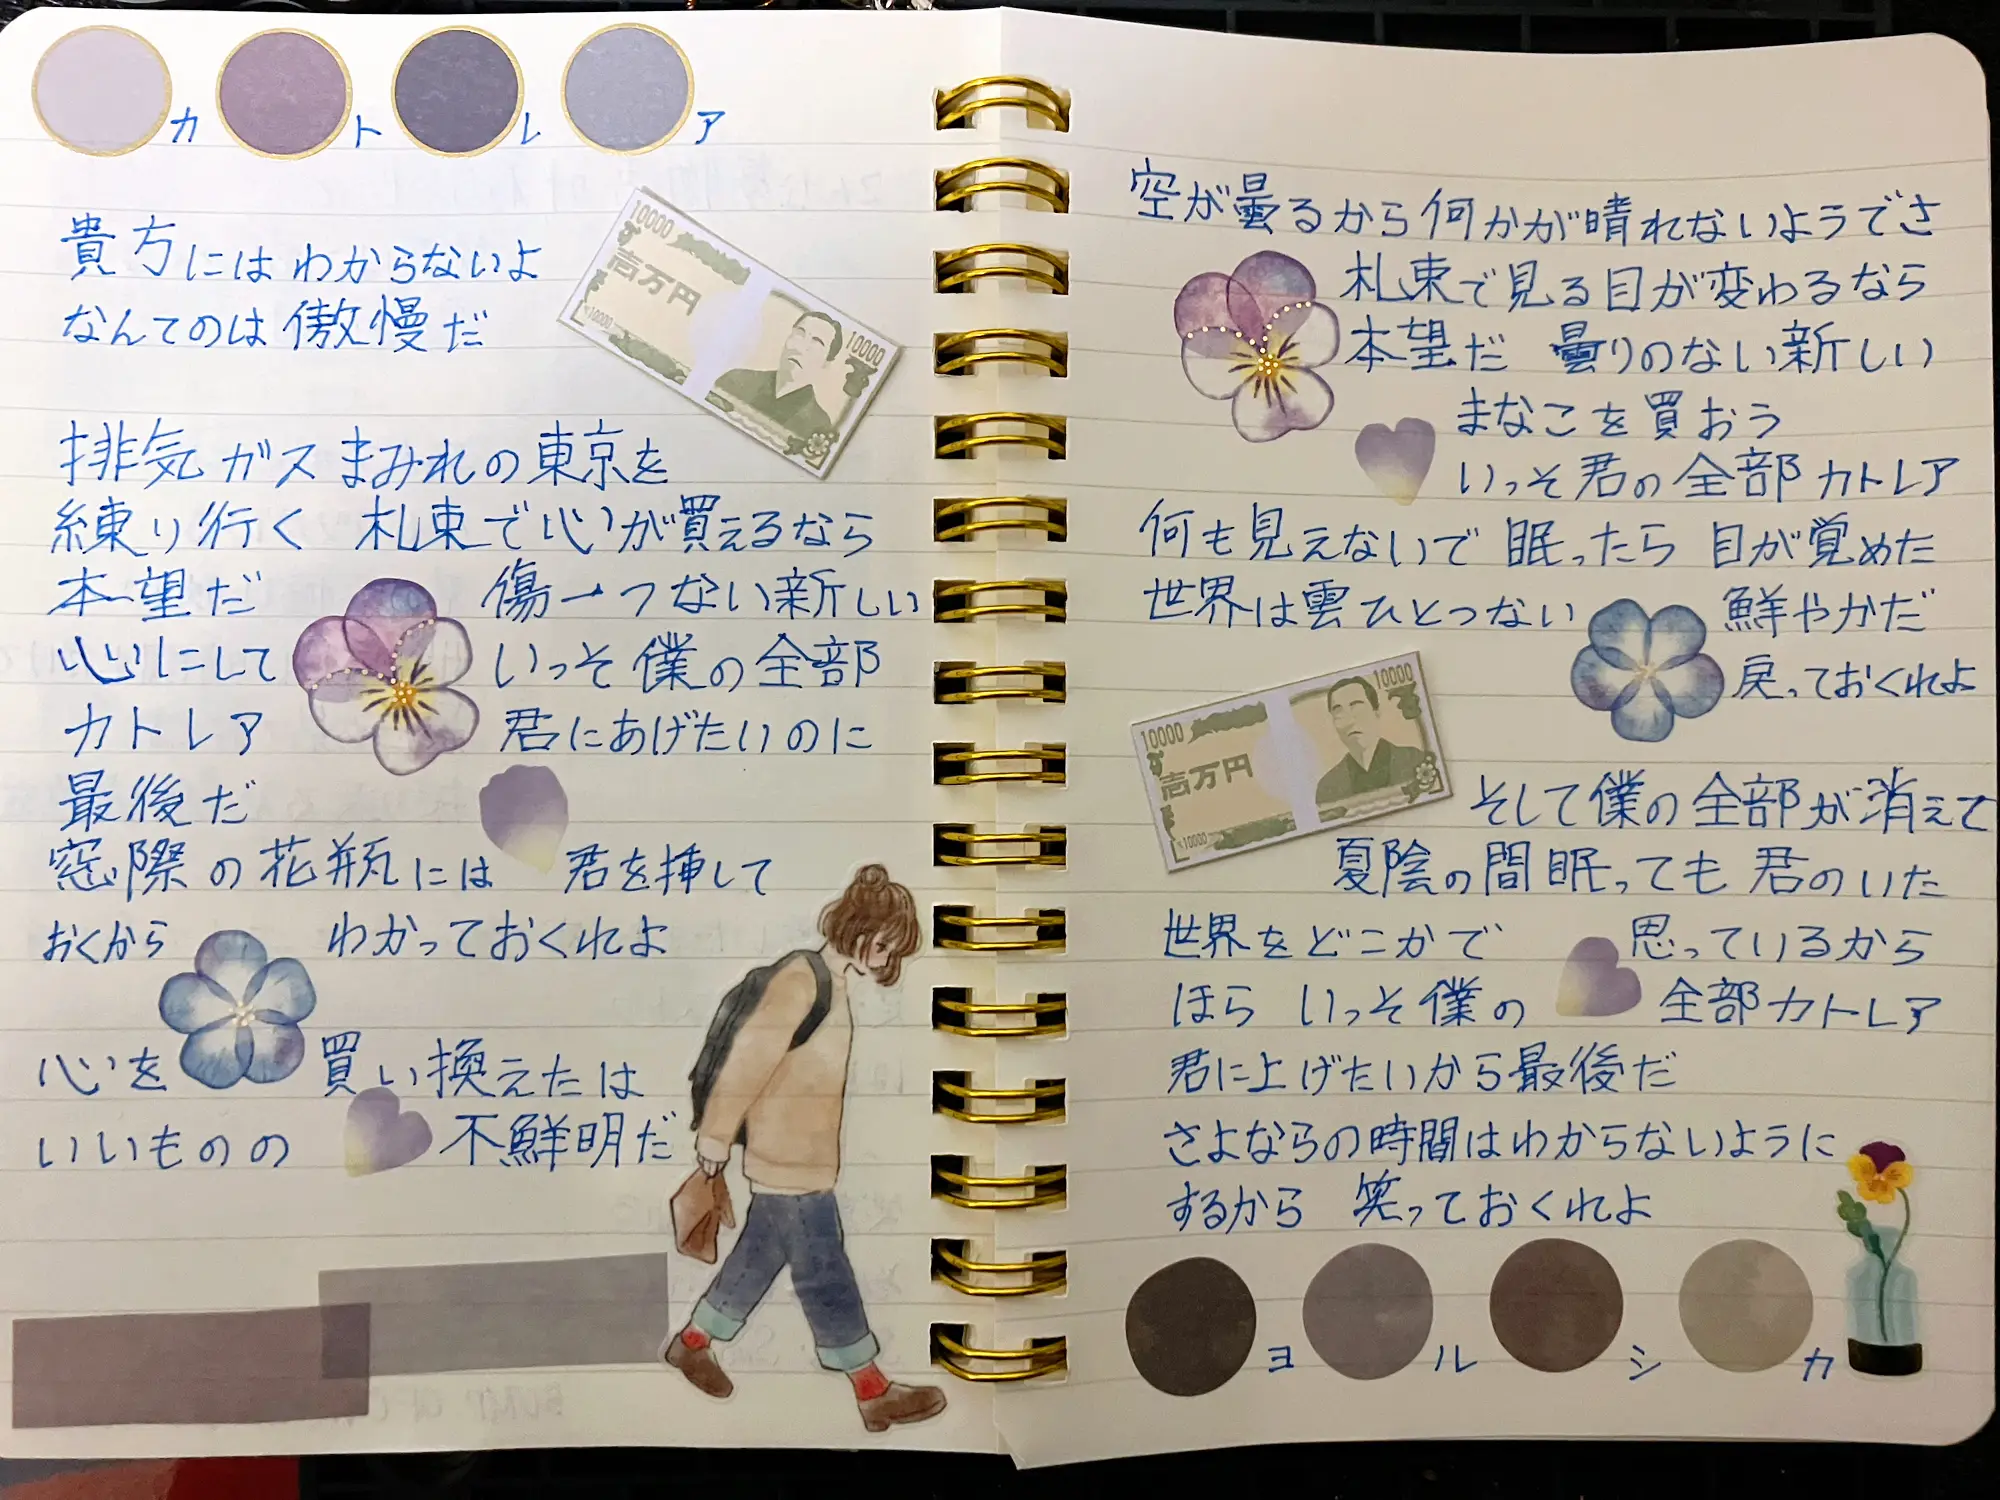 カトレア
貴方にはわからないよ
なんてのは傲慢だ
10000
壱万円
10000
10000
排気ガスまみれの東京を
練り行く 札束で心が買えるなら
本望だ 傷一つない新しい
心にして いっそ僕の全部
カトレア 君にあげたいのに
最後だ
窓際の花瓶には 君を挿して
おくから わかっておくれよ
心を 買い換えたは
いいものの 不鮮明だ
空が曇るから何かが晴れないようでさ
札束で見る目が変わるなら
本望だ 曇りのない新しい
まなこを買おう
いっそ君の全部カトレア
何も見えないで 眠ったら 目が覚めた
世界は雲ひとつない 鮮やかだ
戻っておくれよ
10000
壱万円
10000
10000
そして僕の全部が消えて
夏陰の間眠っても 君のいた
世界をどこかで 思っているから
ほら いっそ僕の 全部カトレア
君に上げたいから最後だ
さよならの時間はわからないように
するから 笑っておくれよ
ヨルシカ